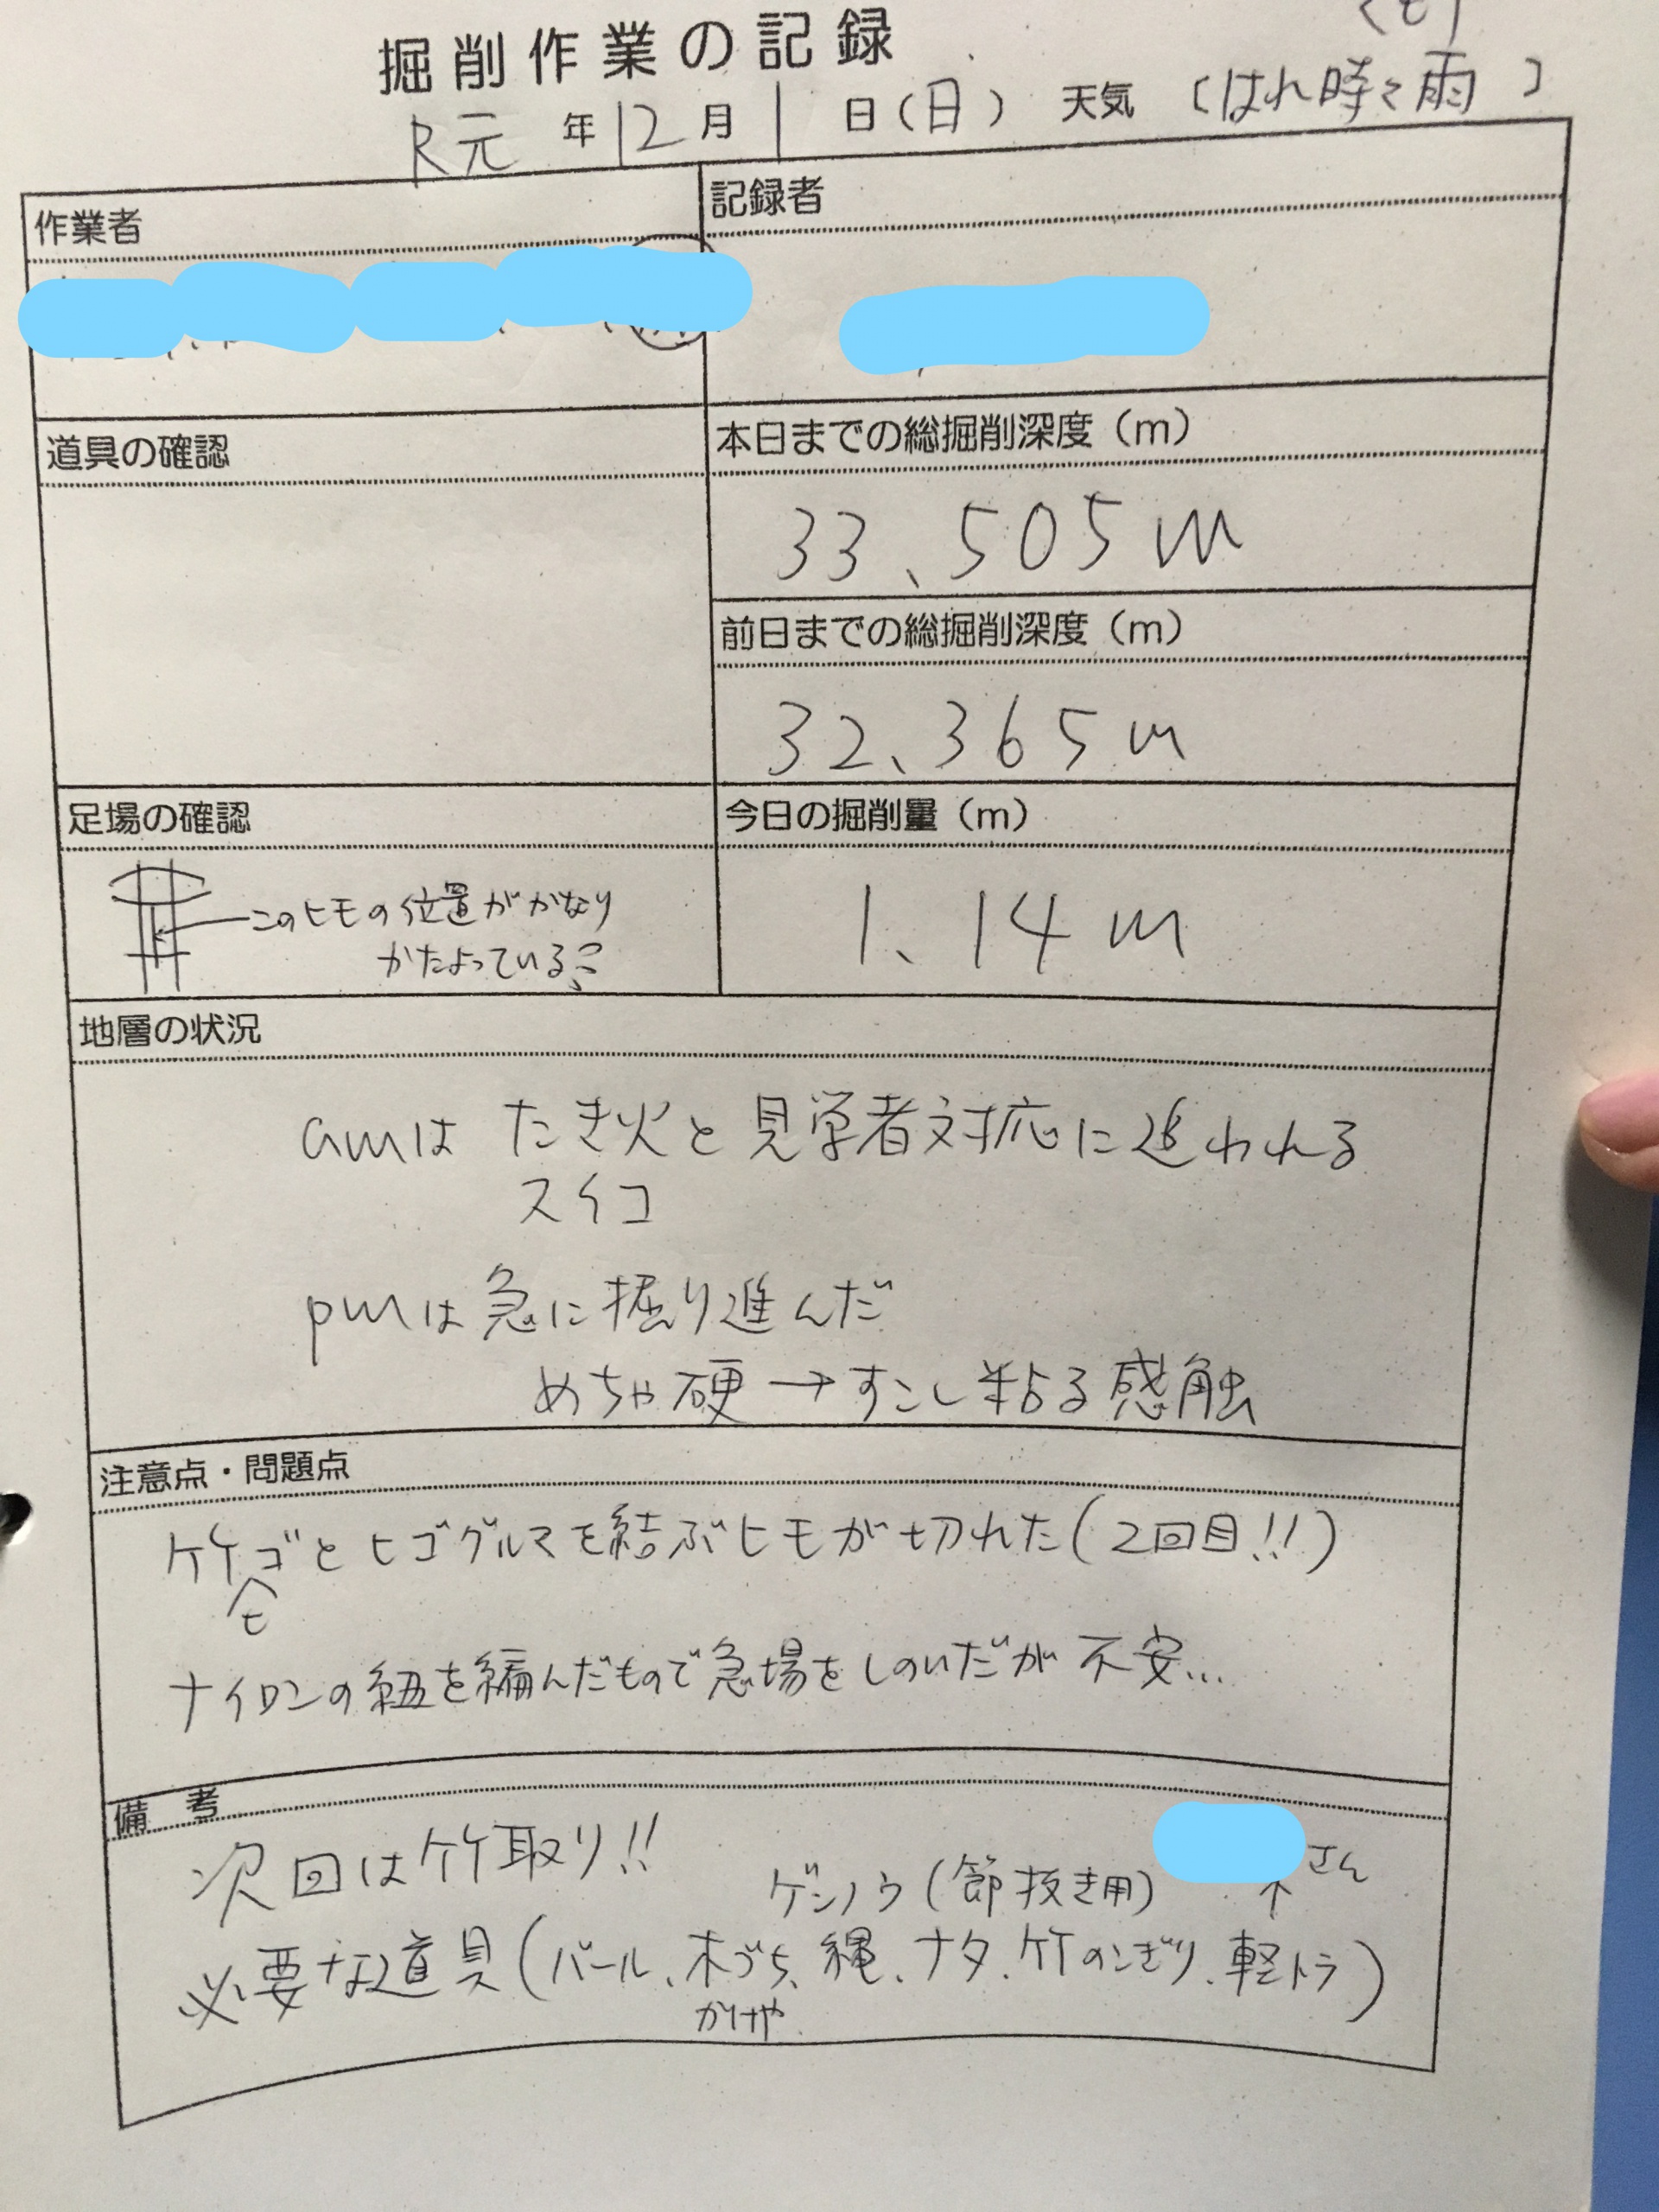 掘削作業の記録
R元年12月1日（日） 天気〔はれ時々雨〕
作業者
記録者
道具の確認
本日までの総掘削深度（m）
33、505m
前日までの総掘削深度（m）
32、365m
足場の確認
今日の掘削量（m）
このヒモの位置がかなり
かたよっている
1、14m
地層の状況
amは たき火と見学者対応に追われる
スイコ
pmは急に掘り進んだ
めちゃ硬→すこし粘る感触
注意点・問題点
竹ゴとヒゴグルマを結ぶヒモが切れた(2回目!!)
ヒ
ナイロンの紐を編んだもので急場をしのいだが不安…
備 考
次回は竹取り!!
ゲンノウ(節抜き用)
さん
必要な道具(バール、木づち、縄、ナタ、竹のこぎり、軽トラ)
かけや